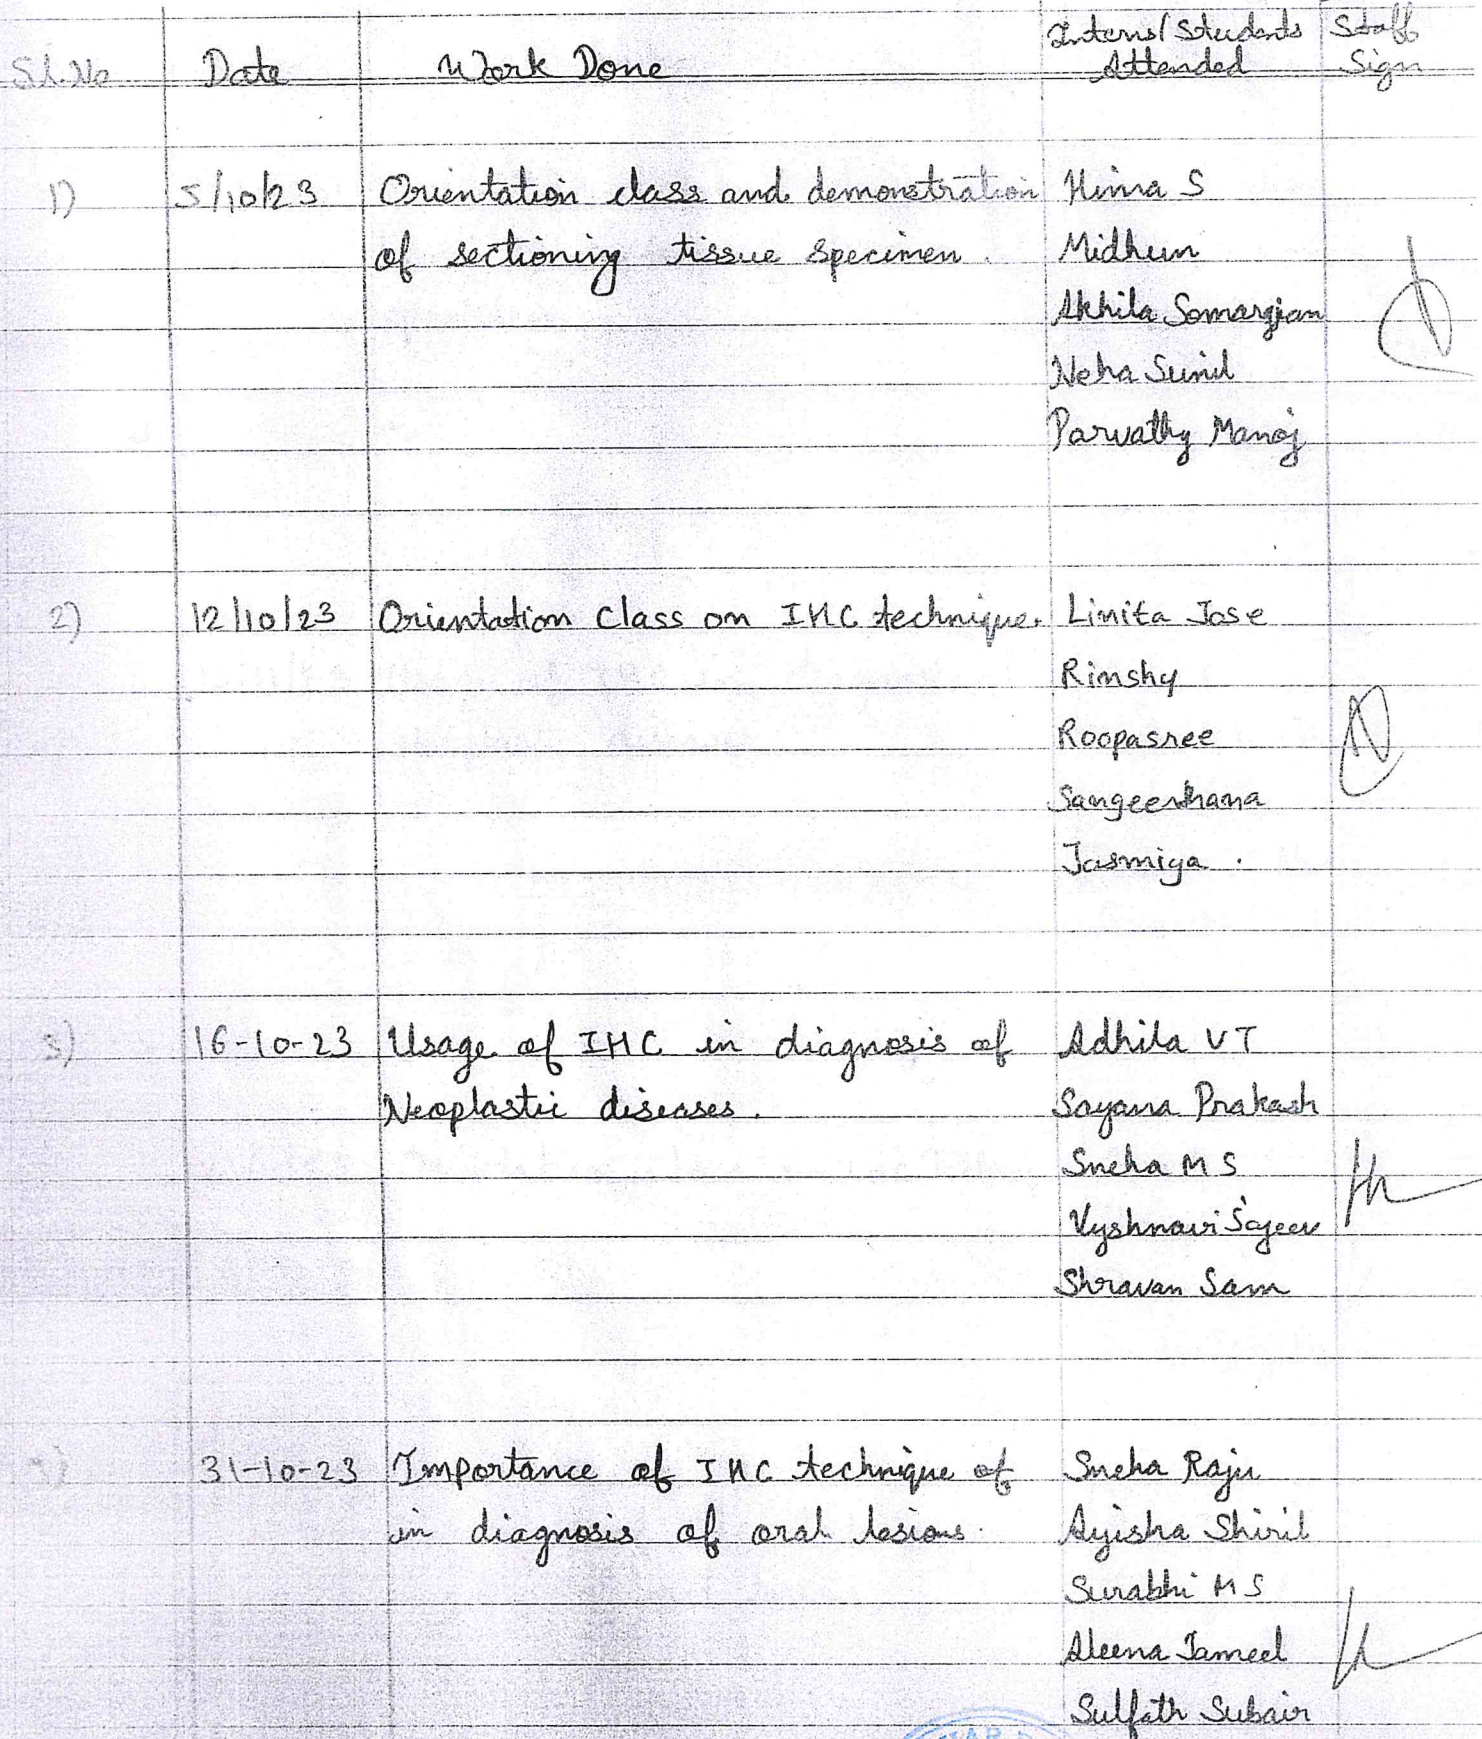 Sl.No Date Work Done Interns/Students Attended Staff Sign
1) 5/10/23 Orientation class and demonstration Hima S
of sectioning tissue specimen. Midhun
Akhila
Neha Sunil
Parvathy Manoj
2) 12/10/23 Orientation Class on IHC technique. Linita Jose
Rimshy
Roopasree
Jasmiya.
3) 16-10-23 Usage of IHC in diagnosis of Adhila V T
Neoplastic diseases. Sayana Prakash
Sneha M S
Vyshnavi Sajeev
Shravan Sam
31-10-23 Importance of IHC technique of Sneha Raju
in diagnosis of oral lesions. Ayisha Shiril
Surabhi M S
Aleena Jameel
Sulfath Subair